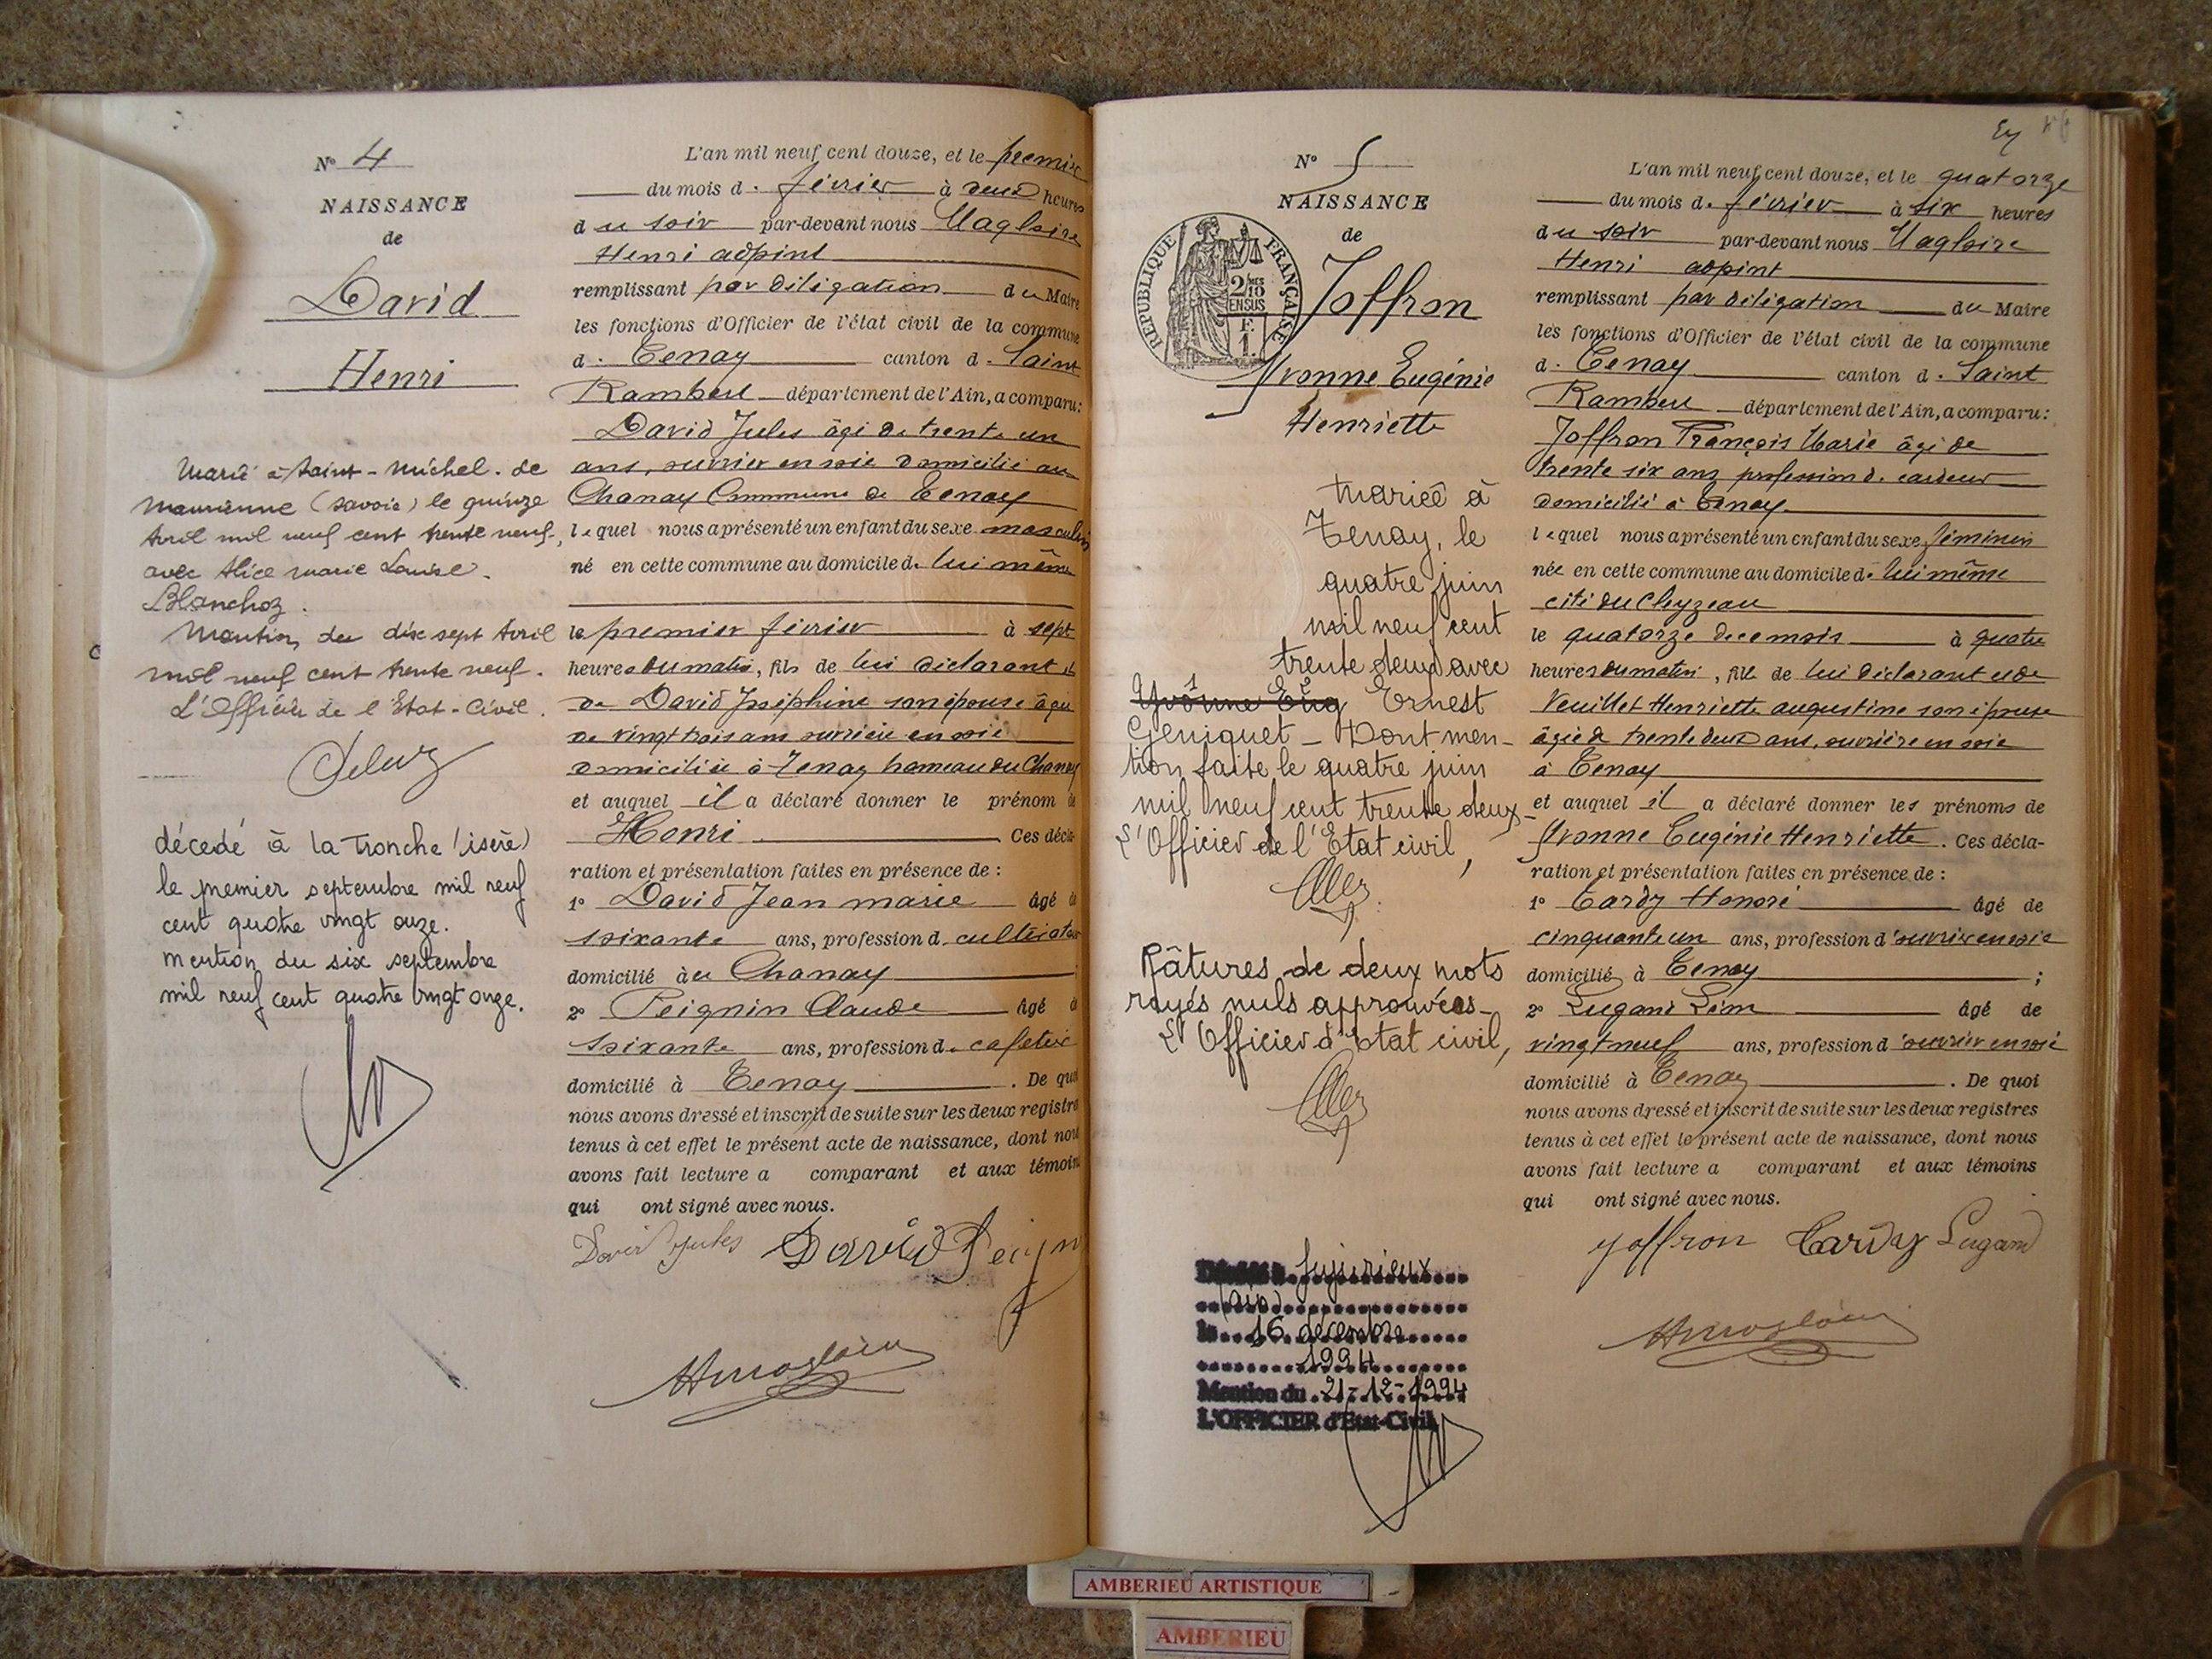 N° 4
NAISSANCE
de
David
Henri
Marié à Saint-Michel-de
Maurienne (Savoie) le quinze
Avril mil neuf cent trente neuf,
avec Alice Marie Louise
Blanchoz.
Mention du dix sept Avril
mil neuf cent trente neuf.
L'Officier de l'Etat-Civil.
décedé à la Tronche (isère)
le premier septembre mil neuf
cent quatre vingt onze.
mention du six septembre
mil neuf cent quatre vingt onze.
L'an mil neuf cent douze, et le premier
du mois d. février à deux heures
du soir par-devant nous Magloire
Henri adpint
remplissant par déligation du Maire
les fonctions d'Officier de l'état civil de la commune
d. Tenay canton d. Saint
Rambert département de l'Ain, a comparu:
David Jules âgé de trente un
ans, ouvrier en soie domicilié au
Chanay Commune de Tenay
lequel nous a présenté un enfant du sexe masculin
né en cette commune au domicile d. lui même
le premier février à sept
heures du matin, fils de lui déclarant et
de David Joséphine son épouse âgée
de vingt trois ans ouvrière en soie
domiciliée à Tenay hameau du Chanay
et auquel il a déclaré donner le prénom de
Henri Ces décla-
ration et présentation faites en présence de :
1° David Jean marie âgé de
soixante ans, profession d. cultivateur
domicilié àu Chanay
2° Peignin Claude âgé de
soixante ans, profession d. cafetier
domicilié à Tenay. De quoi
nous avons dressé et inscrit de suite sur les deux registres
tenus à cet effet le présent acte de naissance, dont nous
avons fait lecture a comparant et aux témoins
qui ont signé avec nous.
David Jules David
N° 5
NAISSANCE
de
REPUBLIQUE FRANÇAISE
2/10 EN SUS
F.
1.
Joffron
Yvonne Eugénie
Henriette
Mariée à
Tenay, le
quatre juin
mil neuf cent
trente deux avec
Yvonne Eug Ernest
Geniquet - Dont men-
tion faite le quatre juin
mil neuf cent trente deux-
L'Officier de l'Etat civil,
Râtures de deux mots
rayés nuls approuvées-
L'Officier d'Etat civil,
Décédée à Jujurieux
(Ain)
le 16 décembre
1994
Mention du 21-12-1994
L'OFFICIER d'Etat-Civil
L'an mil neuf cent douze, et le quatorze
du mois d. février à six heures
du soir par-devant nous Magloire
Henri adpint
remplissant par déligation du Maire
les fonctions d'Officier de l'état civil de la commune
d. Tenay canton d. Saint
Rambert département de l'Ain, a comparu:
Joffron François Marie âgé de
trente six ans profession d. cardeur
domicilié à Tenay
lequel nous a présenté un enfant du sexe féminin
née en cette commune au domicile d. lui même
cité du Cheyzeau
le quatorze de ce mois à quatre
heures du matin, fille de lui déclarant et de
Veuillet Henriette augustine son épouse
âgée de trente deux ans, ouvrière en soie
à Tenay
et auquel il a déclaré donner les prénoms de
Yvonne Eugénie Henriette. Ces décla-
ration et présentation faites en présence de :
1° Tardy Honoré âgé de
cinquante un ans, profession d'ouvrier en soie
domicilié à Tenay ;
2° Lugand Léon âgé de
vingt neuf ans, profession d'ouvrier en soie
domicilié à Tenay. De quoi
nous avons dressé et inscrit de suite sur les deux registres
tenus à cet effet le présent acte de naissance, dont nous
avons fait lecture a comparant et aux témoins
qui ont signé avec nous.
Joffron Tardy Lugand
AMBERIEU ARTISTIQUE
AMBERIEU